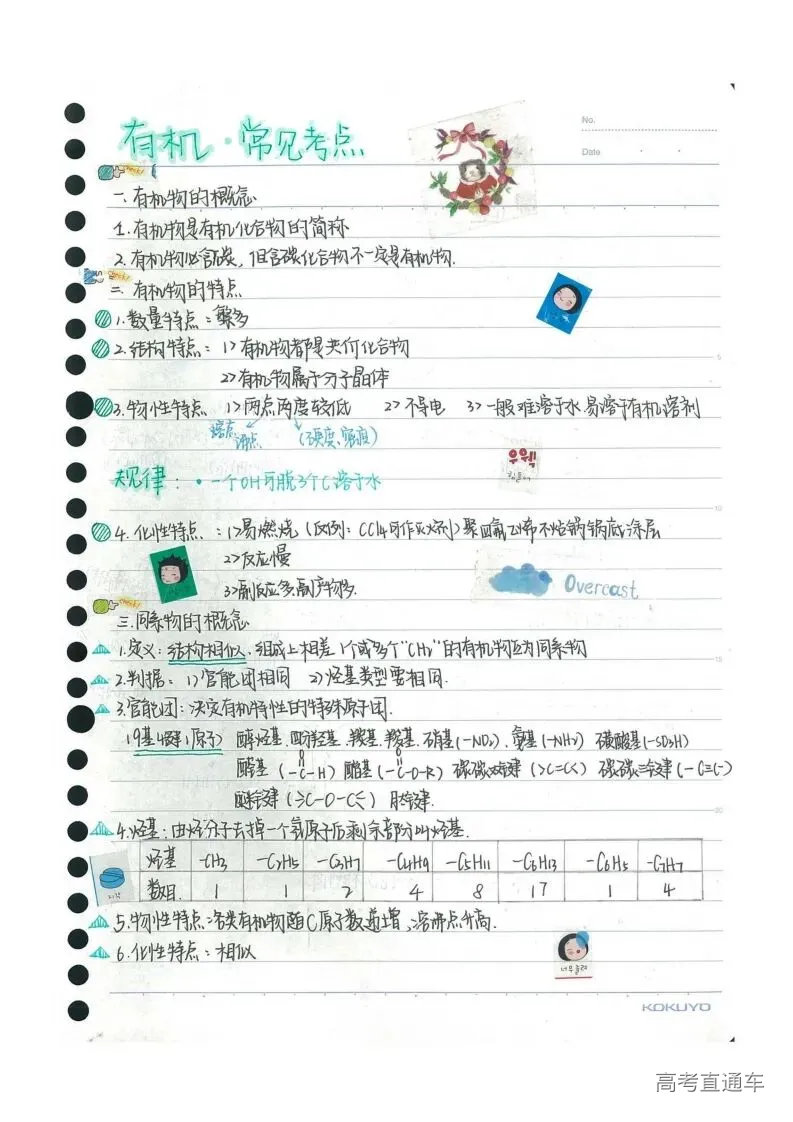 有机·常见考点
No.
Date
一.有机物的概念
1.有机物是有机化合物的简称
2.有机物必含碳,但含碳化合物不一定是有机物.
二.有机物的特点
1.数量特点:繁多
2.结构特点: 1>有机物都是共价化合物
2>有机物属于分子晶体
3.物性特点 1>两点两度较低 2>不导电 3>一般难溶于水易溶于有机溶剂
沸点 (硬度、密度)
우웩
规律: ·一个OH可脱3个C溶于水
4.化性特点: 1>易燃烧(反例: CCl4可作灭火剂)聚四氟乙烯不粘锅锅底涂层
2>反应慢
3>副反应多,副产物多.
Overcast
三.同系物的概念
1.定义:结构相似、组成上相差1个或多个"CH2"的有机物互为同系物
2.判据: 1)官能团相同 2)烃基类型要相同.
3.官能团:决定有机特性的特殊原子团.
硝基(-NO2)、氨基(-NH2) 磺酸基(-SO3H)
醛基(-C-H) 酯基(-C-O-R) 碳碳双键(>C=C<) 碳碳三键(-C≡C-)
醚键(≥C-O-C≤) 肽键.
4.烃基:由烃分子去掉一个氢原子后剩余部分叫烃基.
烃基 -CH3 -C2H5 -C3H7 -C4H9 -C5H11 -C6H13 -C6H5 -C7H7
数目. 1 1 2 4 8 17 1 4
5.物性特点:各类有机物随C原子数递增,溶沸点升高.
6.化性特点:相似
너무졸려
KOKUYO
高考直通车